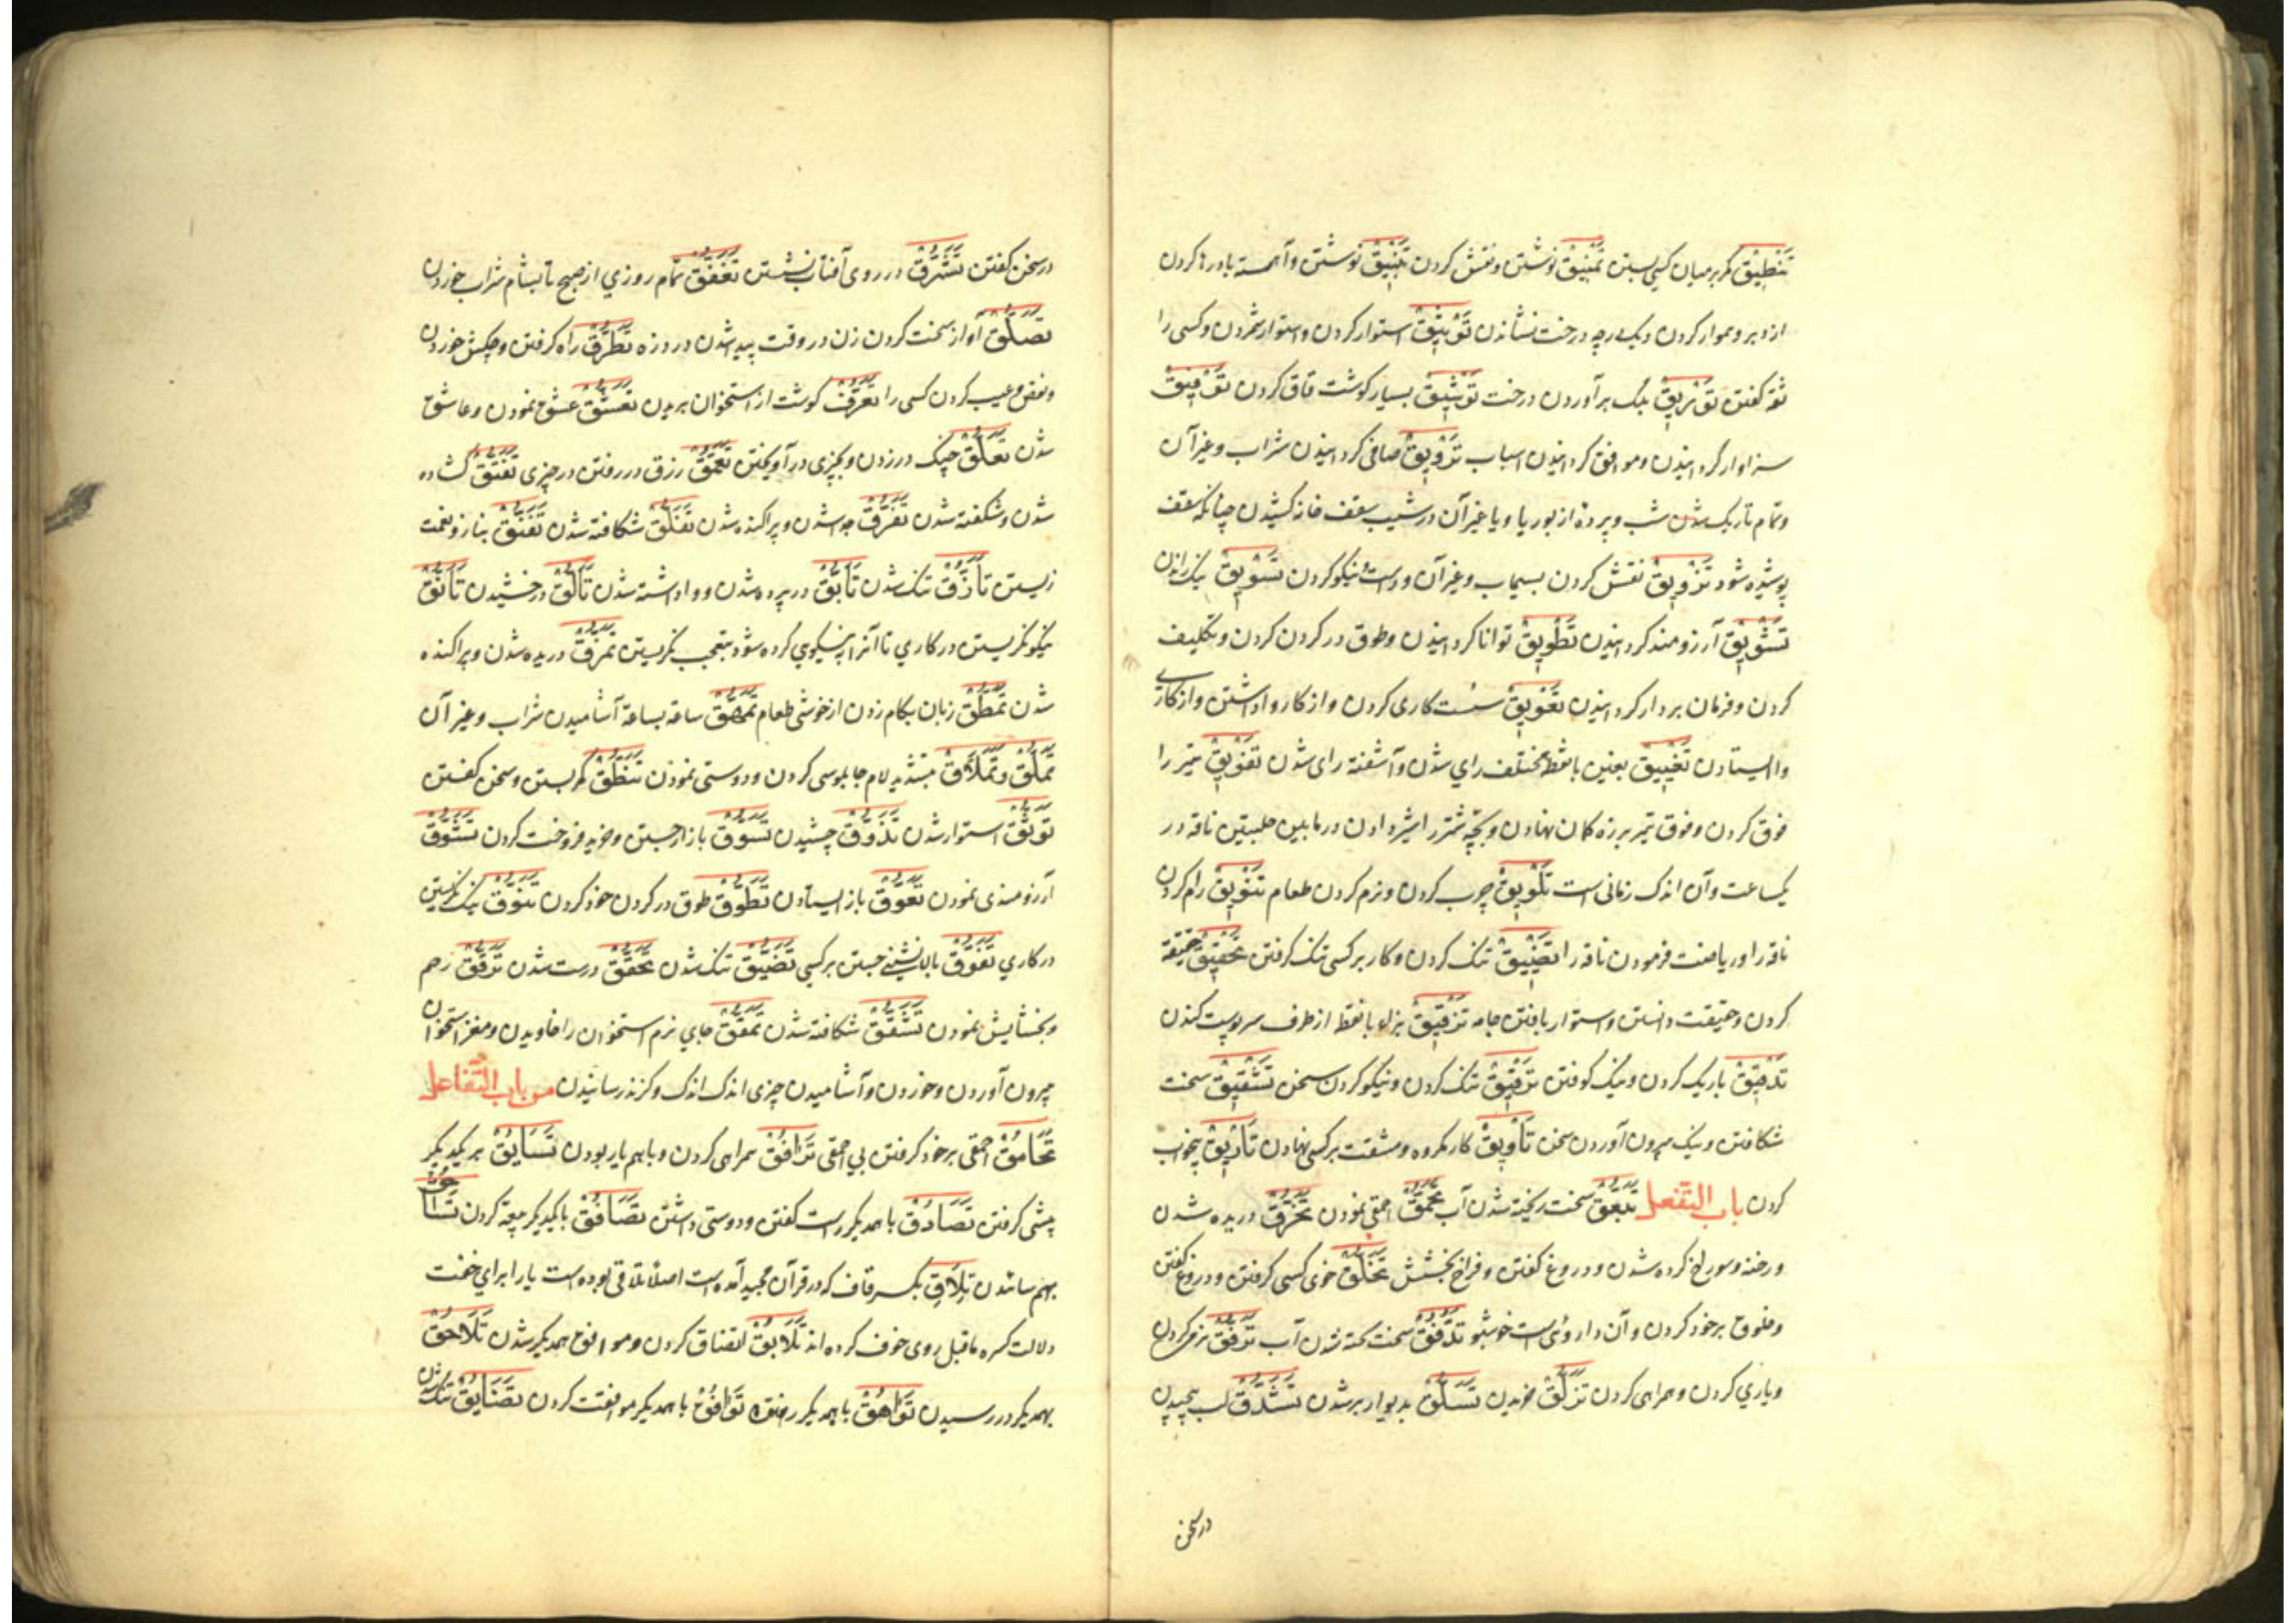 تَنْطِیْق کمر بر میان کسی بستن تَنْمِیْق نوشتن و نقش کردن تَبْنِیْق نوشتن و آهسته یا درها کردن
از دبر و هموار کردن و یک درجه درخت نشاندن تَوْثِیْق استوار کردن و استوار شمردن و کسی را
ثقه گفتن تَوْرِیْق برک برآوردن درخت تَوْشِیْق بسیار گوشت قاق کردن تَوْفِیْق
سزاوار گردانیدن و موافق گردانیدن اسباب تَرْوِیْق صافی گردانیدن شراب و غیر آن
و تمام تاریک شدن شب و پرده از بوریا و یا غیر آن در شیب سقف خانه کشیدن چنانکه سقف
پوشیده شود تَزْوِیْق نقش کردن بسیماب و غیر آن و درست و نیکو کردن تَسْوِیْق نیک راندن
تَشْوِیْق آرزومند گردانیدن تَطْوِیْق توانا گردانیدن و طوق در گردن کردن و تکلیف
کردن و فرمان بردار گردانیدن تَعْوِیْق سست کاری کردن و از کار واداشتن و از کاری
واایستادن تَغْیِیْق بغین با نقطه مختلف رای شدن و آشفته رای شدن تَفْوِیْق تیر را
فوق کردن و فوق تیر بر زه کمان نهادن و بچه شتر را شیر دادن در مابین حلبتین ناقه در
یکساعت و آن اندک زمانی است تَلْوِیْق چرب کردن و نرم کردن طعام تَنْوِیْق رام کردن
ناقه را و ریاضت فرمودن ناقه را تَضْیِیْق تنک کردن و کار بر کسی تنک گرفتن تَحْقِیْق حقیقة
کردن و حقیقت دانستن و استوار بافتن جامه تَزْقِیْق بزاء با نقطه از طرف سر پوست کندن
تَدْقِیْق باریک کردن و نیک کوفتن تَرْقِیْق تنک کردن و نیکو کردن سخن تَشْقِیْق سخت
شکافتن و نیک بیرون آوردن سخن تَأْوِیْق کار مکروه و مشقت بر کسی نهادن تَأْرِیْق بیخواب
کردن باب التفعل تَبَعُّق سخت ریخته شدن آب تَحَمُّق احمقی نمودن تَخَرُّق دریده شدن
و رخنه و سوراخ کرده شدن و دروغ گفتن و فراخ بخشش تَخَلُّق خوی کسی گرفتن و دروغ گفتن
و خلوق بر خود کردن و آن داروئی است خوشبو تَدَفُّق سخت ریخته شدن آب تَرَفُّق نرمی کردن
و یاری کردن و همراهی کردن تَزَلُّق خزیدن تَسَلُّق بدیوار بر شدن تَشَدُّق لب پیچیدن
در سخن
در سخن گفتن تَشَرُّق در روی آفتاب نشستن تَغَفُّق تمام روزی از صبح تا بشام شراب خوردن
تَصَلُّق آواز سخت کردن زن در وقت پیدا شدن درد زه تَطَرُّق راه گرفتن و چکش خوردن
و نقص و عیب کردن کسی را تَعَرُّق گوشت از استخوان بریدن تَعَشُّق عشق نمودن و عاشق
شدن تَعَلُّق چنک در زدن و بچیزی درآویختن تَعَمُّق رزق در رفتن در چیزی تَفَتُّق گشاده
شدن و شکفته شدن تَفَرُّق جدا شدن و پراکنده شدن تَفَلُّق شکافته شدن تَفَنُّق بناز و نعمت
زیستن تَأَزُّق تنک شدن تَأَبُّق در پرده شدن و واداشته شدن تَأَلُّق درخشیدن تَأَنُّق
نیکو نگریستن در کاری تا آنرا به نیکویی کرده شود بتعجب نگریستن تَمَزُّق دریده شدن و پراکنده
شدن تَمَطُّق زبان بکام زدن از خوشی طعام تَمَهُّق ساعة بساعة آشامیدن شراب و غیر آن
تَمَلُّق و تِمِلَّاق بتشدید لام چابلوسی کردن و دوستی نمودن تَنَطُّق کمر بستن و سخن گفتن
تَوَثُّق استوار شدن تَذَوُّق چشیدن تَسَوُّق بازار جستن و خرید فروخت کردن تَشَوُّق
آرزومندی نمودن تَعَوُّق باز ایستادن تَطَوُّق طوق در گردن خود کردن تَنَوُّق نیک نگریستن
در کاری تَفَوُّق بالا نشینی جستن بر کسی تَضَیُّق تنک شدن تَحَقُّق درست شدن تَرَفُّق رحم
و بخشایش نمودن تَشَقُّق شکافته شدن تَمَقُّق جای نرم استخوان را خاویدن و مغز استخوان
بیرون آوردن و خوردن و آشامیدن چیزی اندک اندک و گزند رسانیدن من باب التفاعل
تَحَامُق احمقی بر خود گرفتن بی احمقی تَرَافُق همراهی کردن و باهم یار بودن تَسَابُق بر یکدیگر
پیشی گرفتن تَصَادُق با همدیگر راست گفتن و دوستی داشتن تَصَافُق با یکدیگر بیعة کردن تَسَاوُق
بهم ساندن تَلَاقِ بکسر قاف که در قرآن مجید آمده است اصلا تلاقی بوده است یا را برای خفت
دلالت کسره ماقبل روی حذف کرده اند تَلَابُق اتفاق کردن و موافق همدیگر شدن تَلَاحُق
بهمدیگر در رسیدن تَوَاهُق با همدیگر رفتن تَوَافُق با همدیگر موافقت کردن تَضَایُق تنک شدن